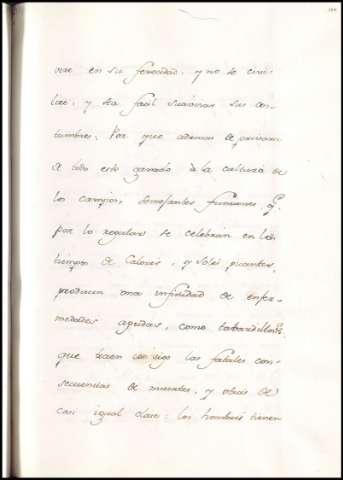 vive en su ferocidad, y no se civi-
lice, y sea facil suavizar sus cos-
tumbres. Por que ademas de privarse
à todo este ganado à la cultura de
los campos, semejantes funciones q.e
por lo regular se celebran en los
tiempos de Calores, y Soles picantes,
producen una infinidad de enfer-
medades agudas, como tabardillos &.
que traen consigo las fatales con-
secuencias de muertes, y otras de
casi igual clase: los hombres tienen